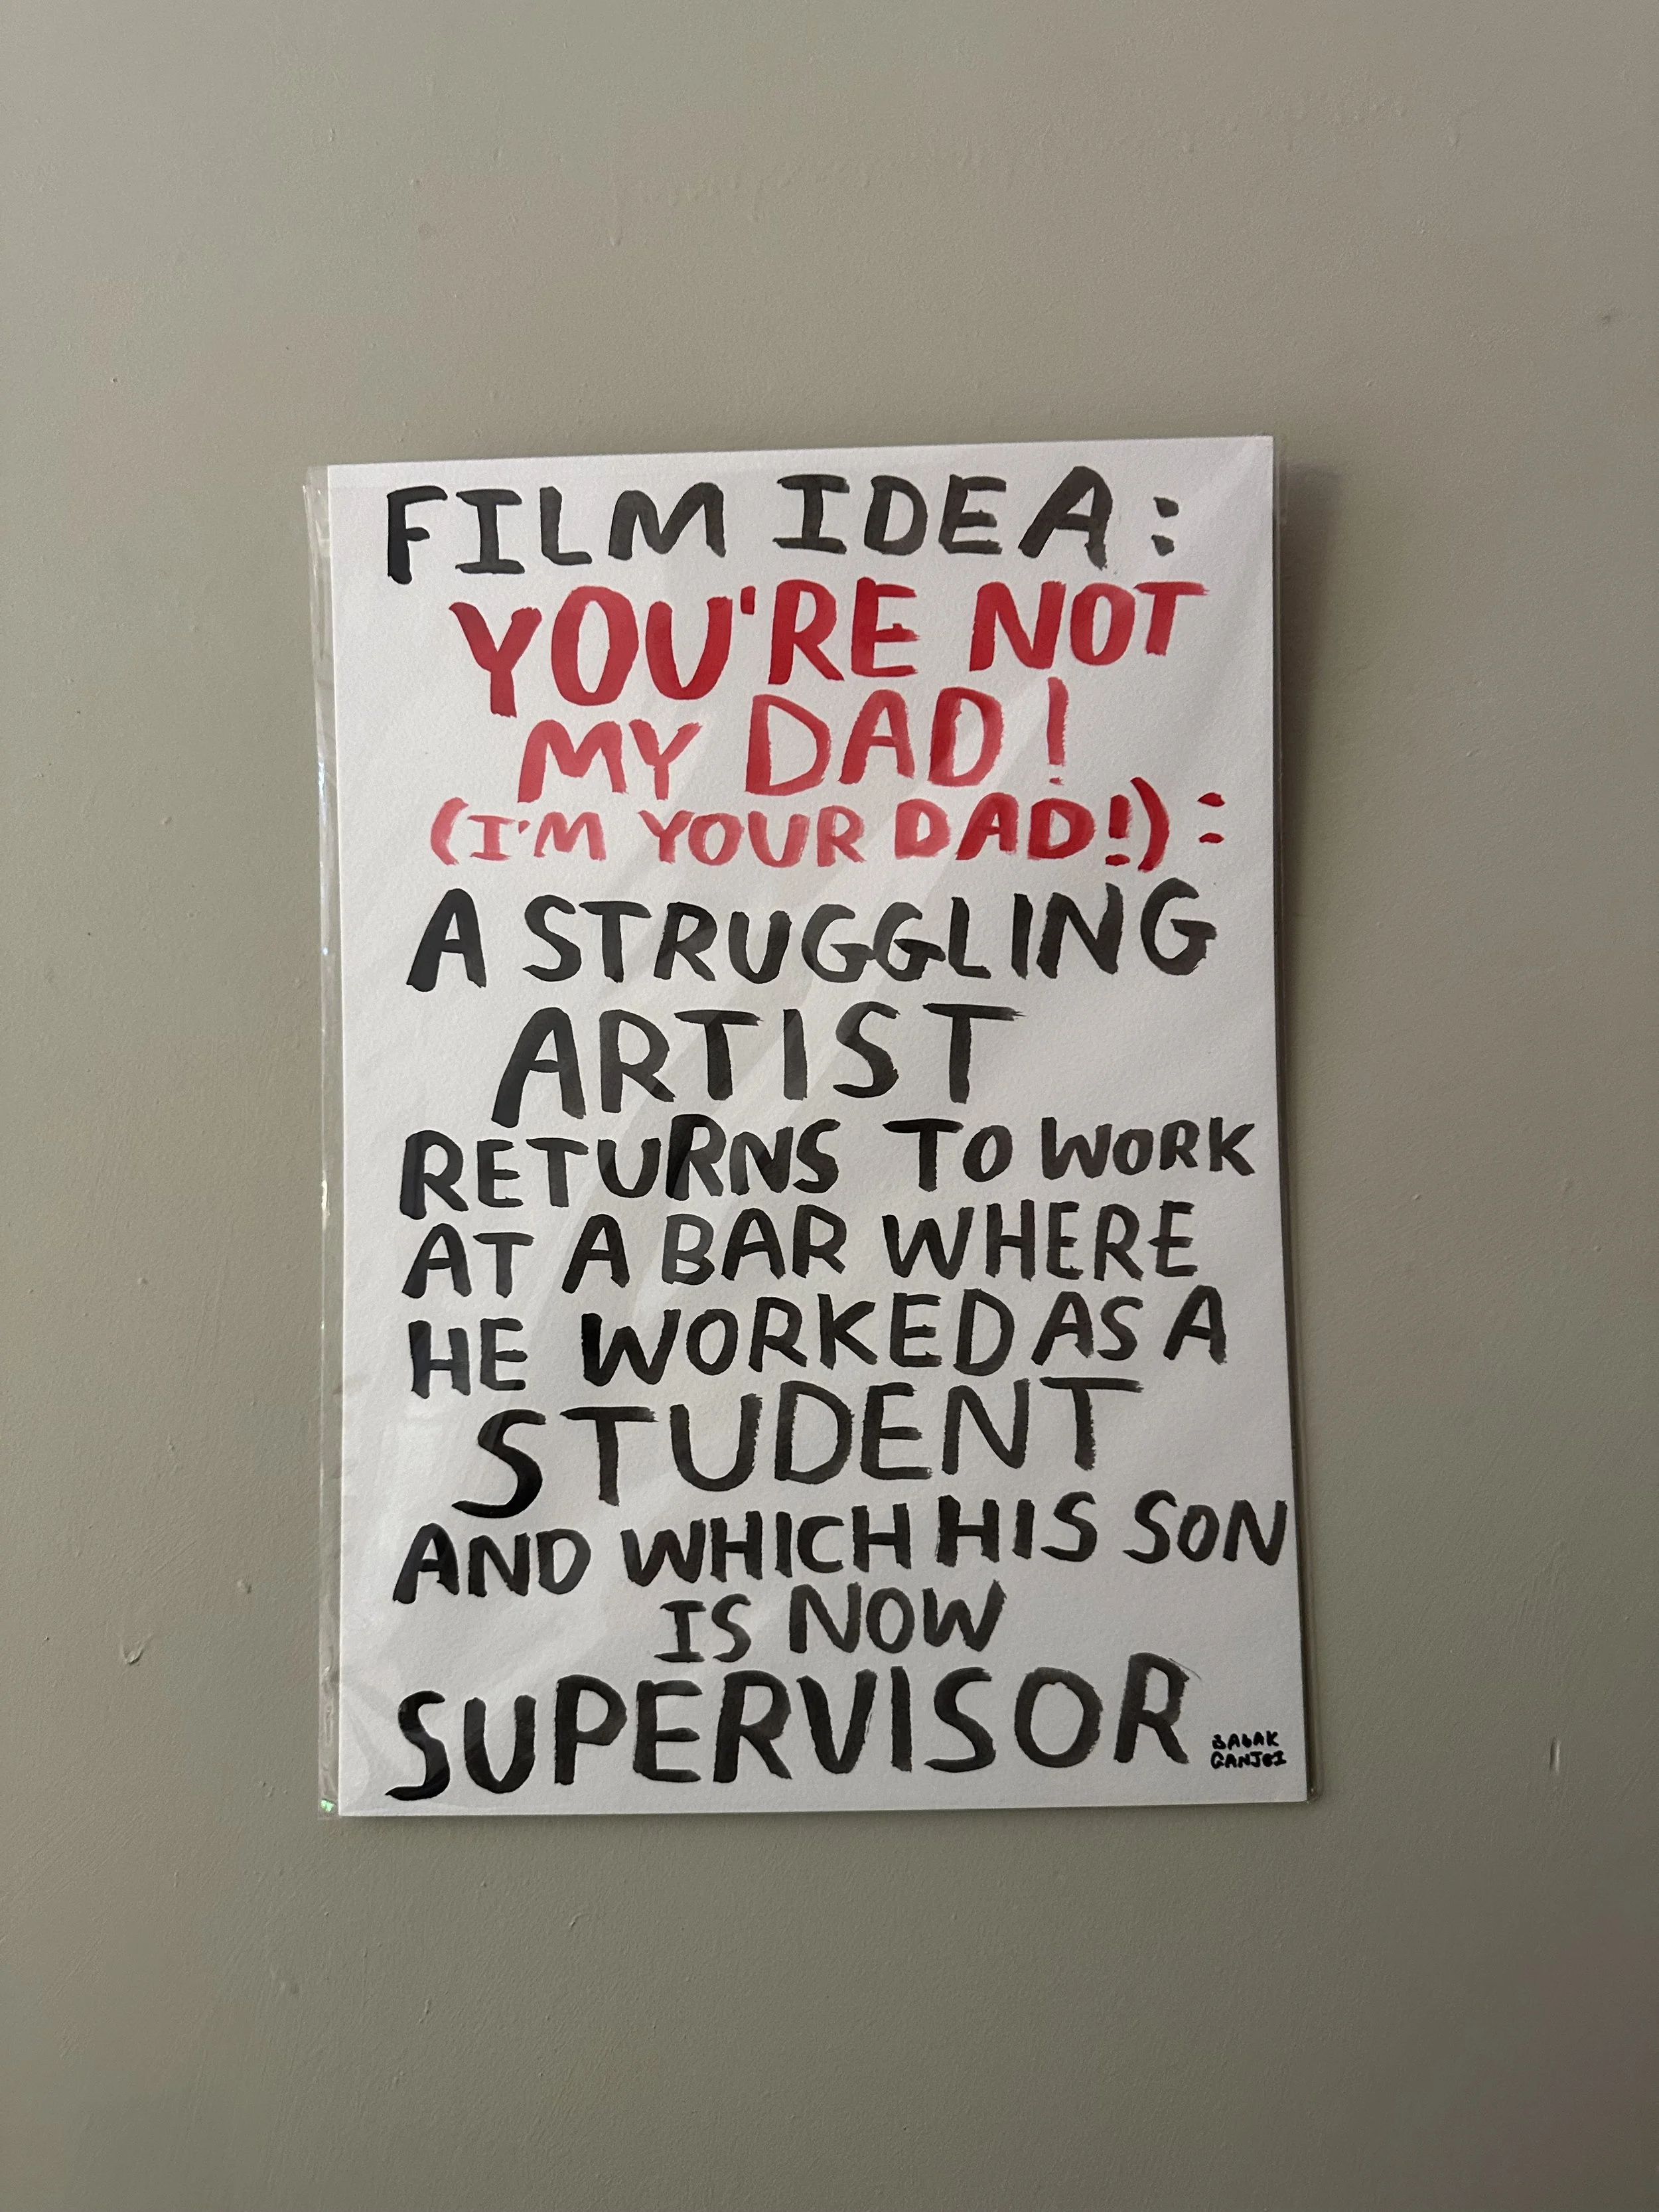 FILM IDEA:
YOU'RE NOT
MY DAD!
(I'M YOUR DAD!):
A STRUGGLING
ARTIST
RETURNS TO WORK
AT A BAR WHERE
HE WORKED AS A
STUDENT
AND WHICH HIS SON
IS NOW
SUPERVISOR
BABAK
GANJEI